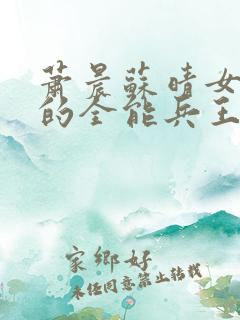 萧晨蘇晴女
的全能兵王
家鄉好
未经同意禁止转载